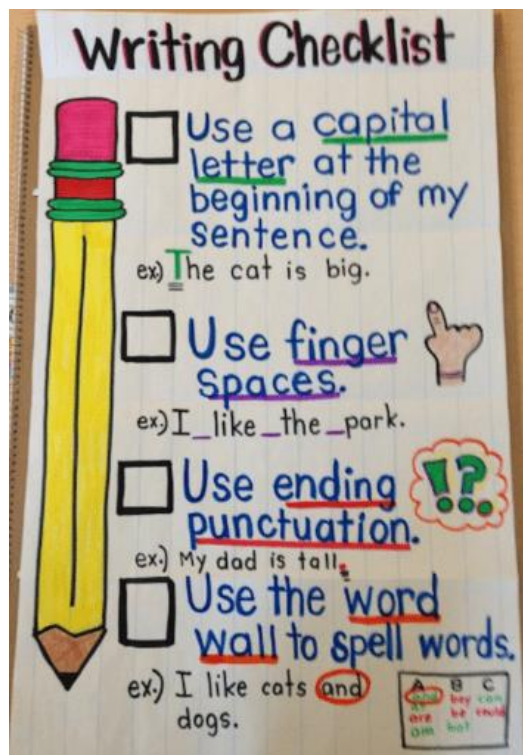 Writing Checklist
Use a capital
letter at the
beginning of my
sentence.
ex.) The cat is big.
Use finger
spaces.
ex.) I_like_the_park.
Use ending
punctuation.
!?.
ex.) My dad is tall.
Use the word
wall to spell words.
ex.) I like cats and
dogs.
A B C
and boy can
at
are be
am bat